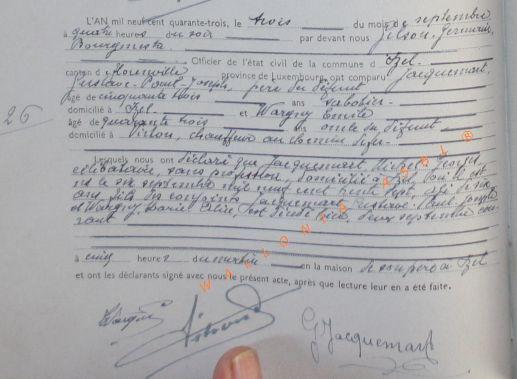 L'AN mil neuf cent quarante-trois, le trois du mois de septembre
à quatre heures du soir par devant nous Gilson, Germain,
Bourgmestre
Officier de l'état civil de la commune d Izel
canton d Florenville province de Luxembourg, ont comparu Jacquemart,
Gustave-Paul-Joseph, père du défunt
âgé de cinquante trois ans
domicilié à Izel et Wargny Emile
âgé de quarante trois ans oncle du défunt
domicilié à Virton, chauffeur au chemin de fer
26
Lesquels nous ont déclaré que Jacquemart, Michel-Georges,
célibataire, sans profession, domicilié à Izel, où il est
né le six septembre mil neuf cent trente sept, âgé de
ans, fils des conjoints Jacquemart Gustave-Paul-Joseph
et Wargny Marie est décédé hier, deux septembre cou-
rant
à cinq heures du matin en la maison à Izel
et ont les déclarants signé avec nous le présent acte, après que lecture leur en a été faite.
Wargny
Gilson
G Jacquemart
WALLONIA ASBL ®